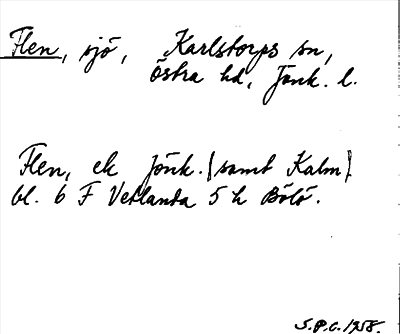 Flen, sjö, Karlstorps sn,
Östra hd, Jönk. l.
Flen, ek Jönk. (samt Kalm)
bl. 6 F Vetlanda 5 h Bölö.
S.P.C. 1958.